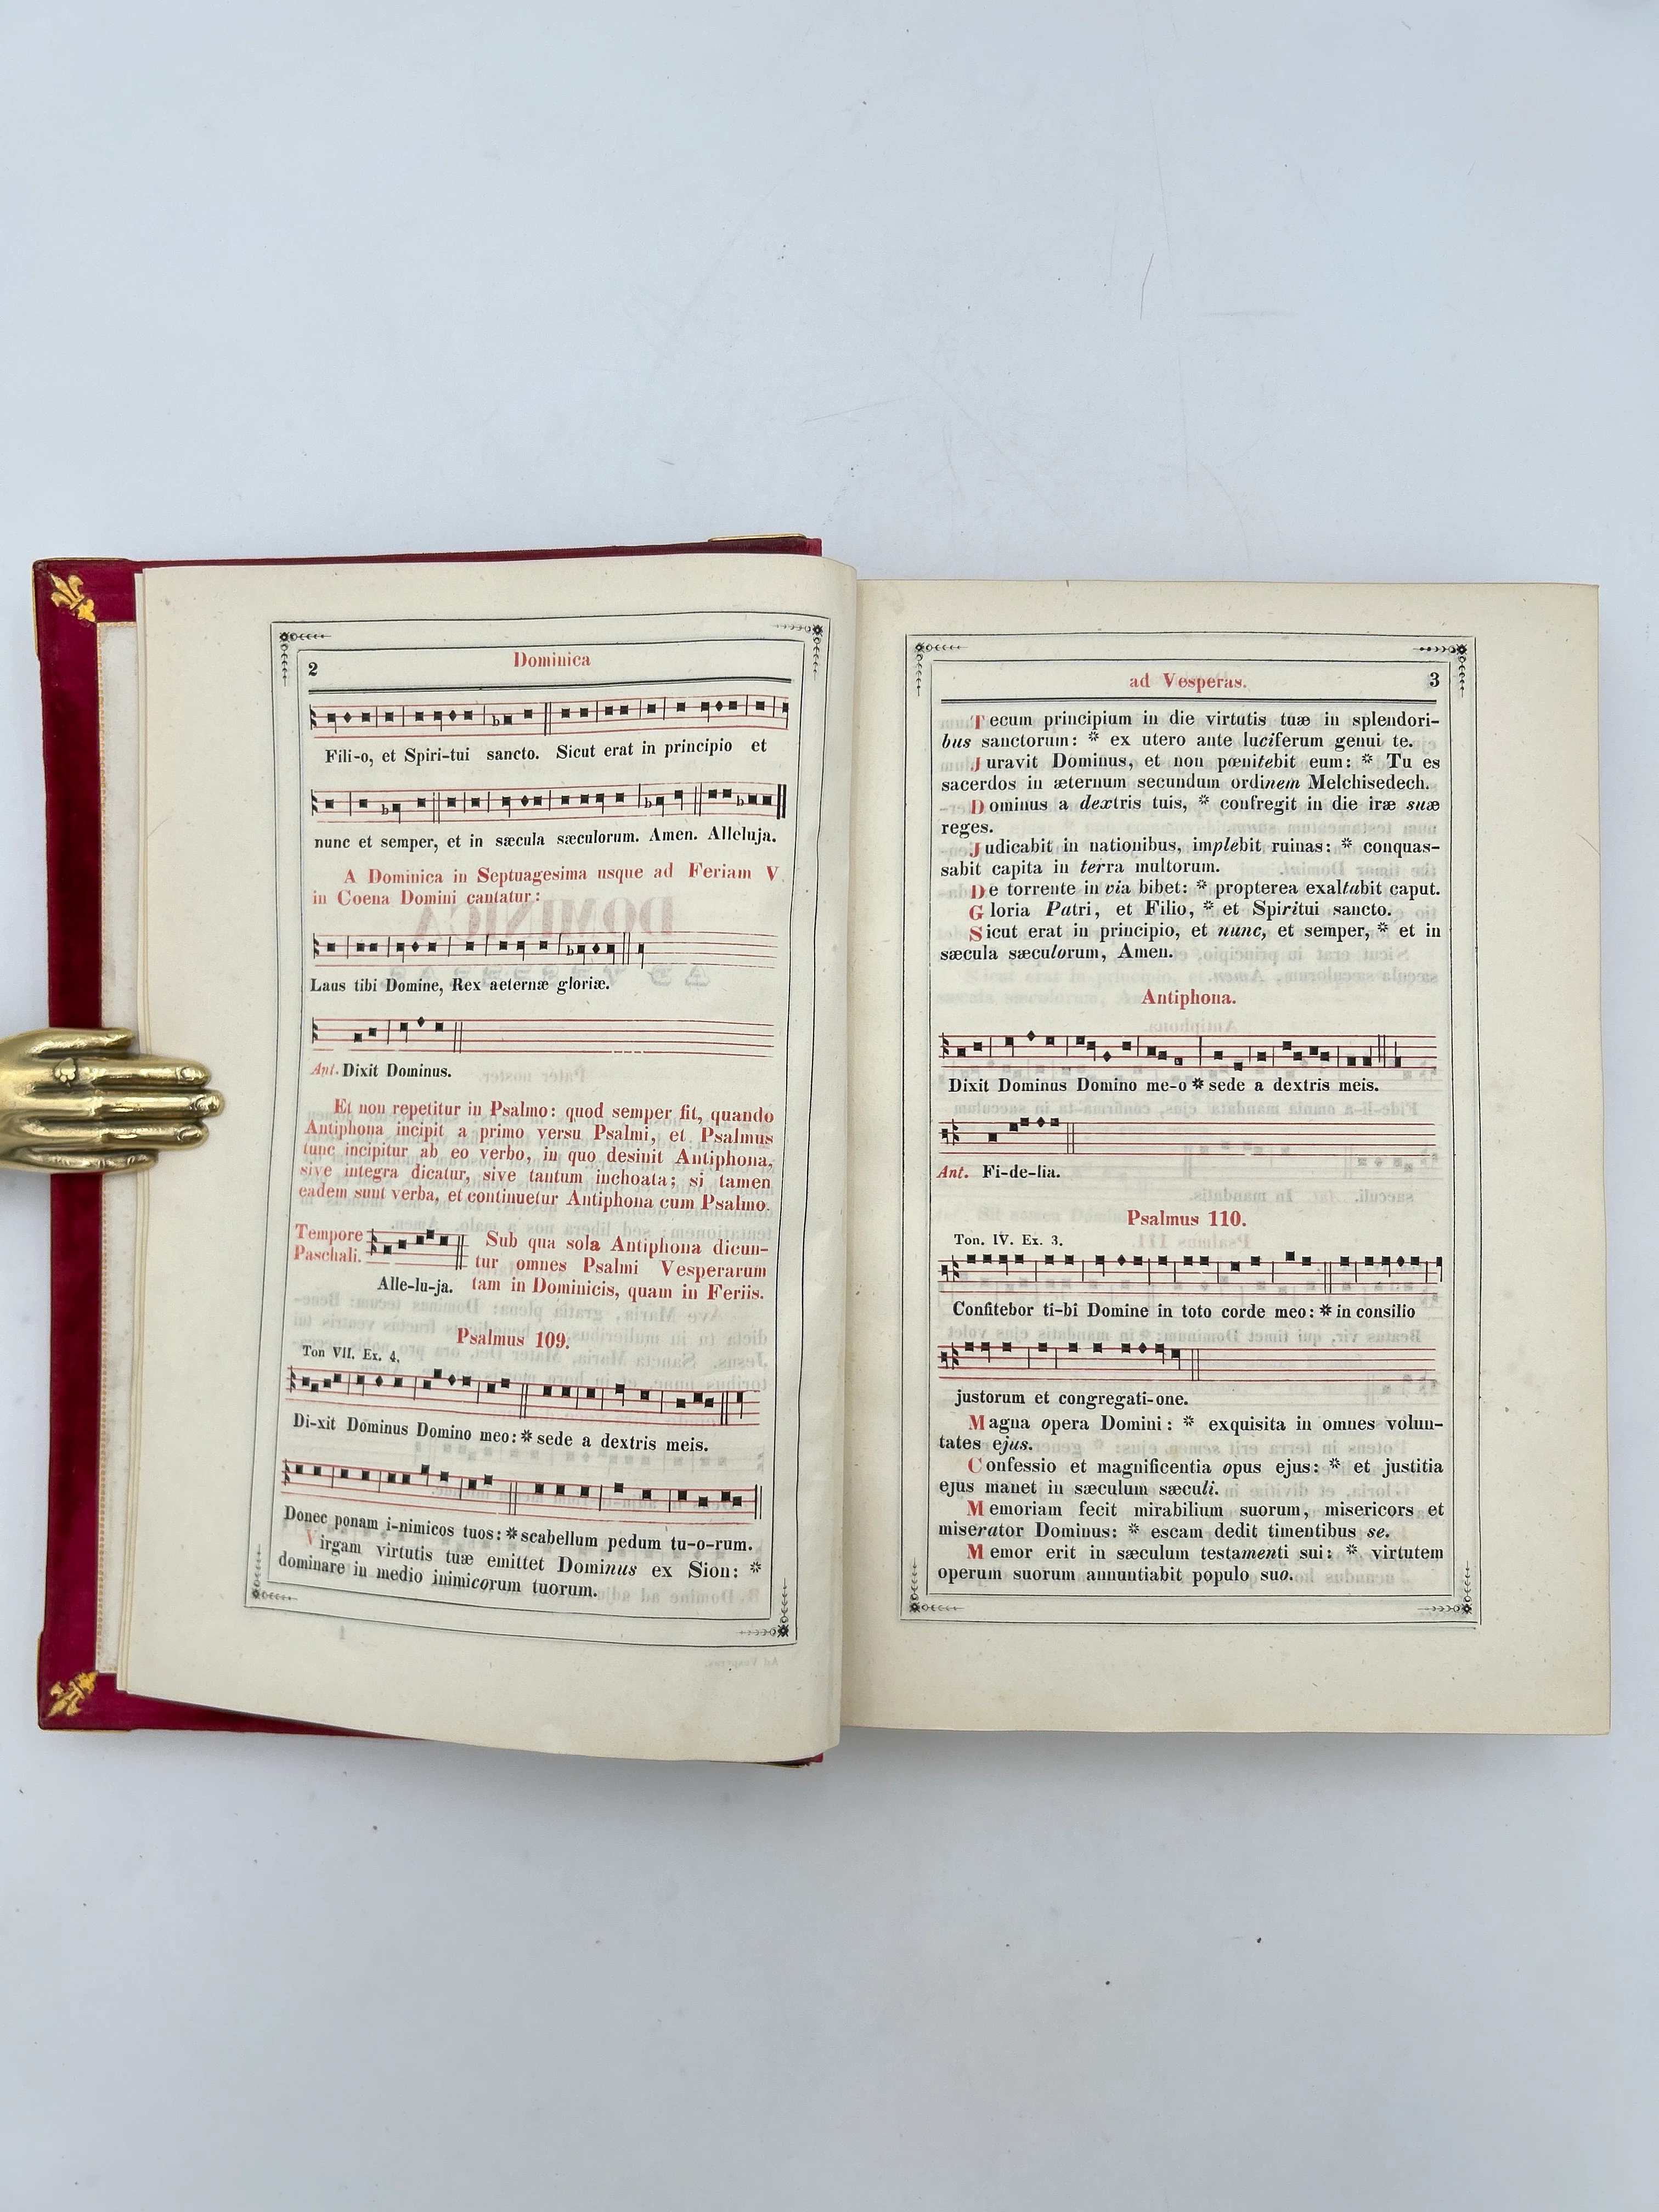 2
Dominica
Fili-o, et Spiri-tui sancto. Sicut erat in principio et
nunc et semper, et in sæcula sæculorum. Amen. Alleluja.
A Dominica in Septuagesima usque ad Feriam V.
in Coena Domini cantatur:
Laus tibi Domine, Rex aeternæ gloriæ.
Ant. Dixit Dominus.
Et non repetitur in Psalmo: quod semper fit, quando
Antiphona incipit a primo versu Psalmi, et Psalmus
tunc incipitur ab eo verbo, in quo desinit Antiphona,
sive integra dicatur, sive tantum inchoata; si tamen
eadem sunt verba, et continuetur Antiphona cum Psalmo.
Tempore
Paschali.
Alle-lu-ja.
Sub qua sola Antiphona dicun-
tur omnes Psalmi Vesperarum
tam in Dominicis, quam in Feriis.
Psalmus 109.
Ton VII. Ex. 4.
Di-xit Dominus Domino meo: * sede a dextris meis.
Donec ponam i-nimicos tuos: * scabellum pedum tu-o-rum.
Virgam virtutis tuæ emittet Dominus ex Sion: *
dominare in medio inimicorum tuorum.
ad Vesperas.
3
Tecum principium in die virtutis tuæ in splendori-
bus sanctorum: * ex utero ante luciferum genui te.
Juravit Dominus, et non pœnitebit eum: * Tu es
sacerdos in æternum secundum ordinem Melchisedech.
Dominus a dextris tuis, * confregit in die iræ suæ
reges.
Judicabit in nationibus, implebit ruinas: * conquas-
sabit capita in terra multorum.
De torrente in via bibet: * propterea exaltabit caput.
Gloria Patri, et Filio, * et Spiritui sancto.
Sicut erat in principio, et nunc, et semper, * et in
sæcula sæculorum, Amen.
Antiphona.
Dixit Dominus Domino me-o * sede a dextris meis.
Ant. Fi-de-lia.
Psalmus 110.
Ton. IV. Ex. 3.
Confitebor ti-bi Domine in toto corde meo: * in consilio
justorum et congregati-one.
Magna opera Domini: * exquisita in omnes volun-
tates ejus.
Confessio et magnificentia opus ejus: * et justitia
ejus manet in sæculum sæculi.
Memoriam fecit mirabilium suorum, misericors et
miserator Dominus: * escam dedit timentibus se.
Memor erit in sæculum testamenti sui: * virtutem
operum suorum annuntiabit populo suo.